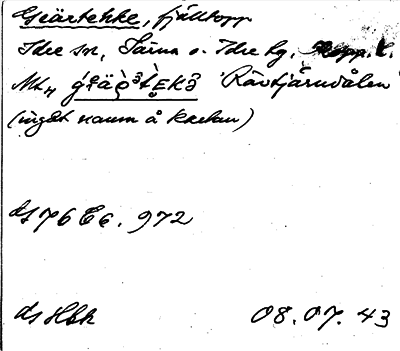 Gïärtehke, fjälltopp
Idre sn, Särna o. Idre tg, Kopp. l.
'Rävtjärndalen'
(inget namn å kartan)
ds 76 Cc. 972
ds Hbk 08.07.43